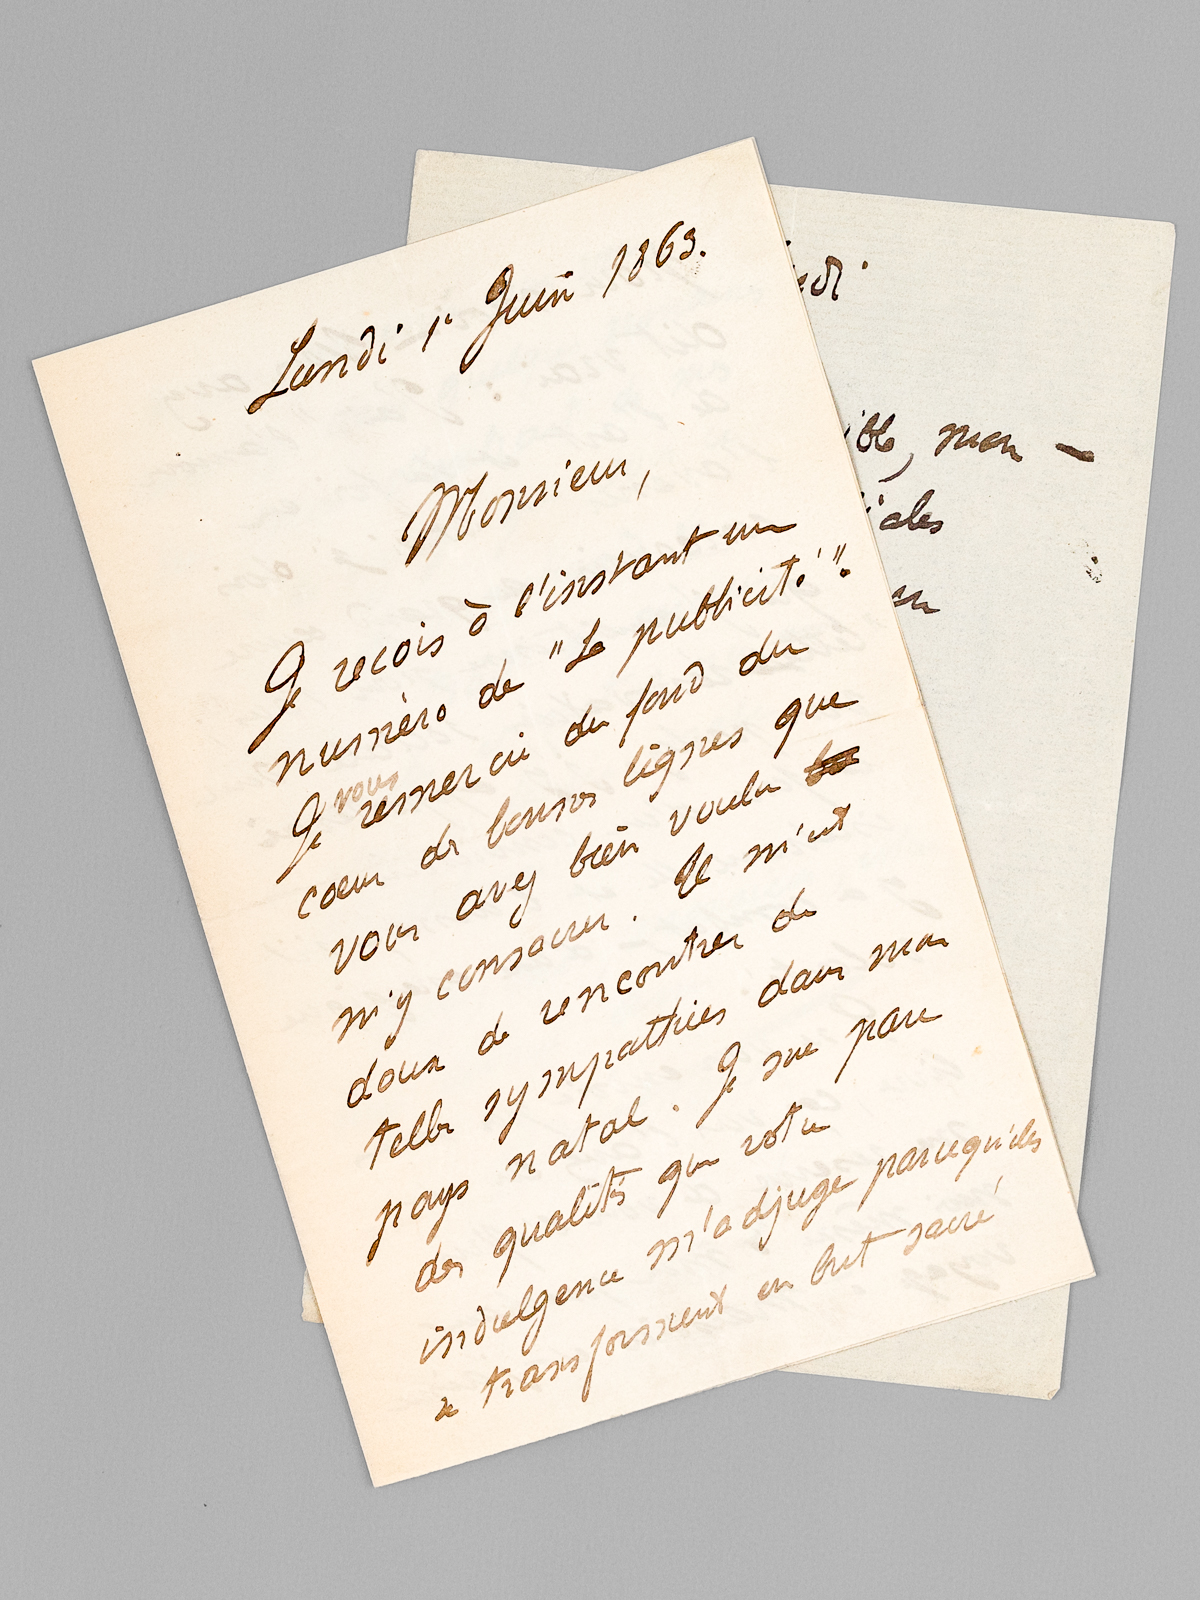 Lundi 1r Juin 1863.
Monsieur,
Je reçois à l'instant un
numéro de "La publicité".
Je vous remercie du fond du
cœur des bonnes lignes que
vous avez bien voulu
m'y consacrer. Il m'est
doux de rencontrer de
telles sympathies dans mon
pays natal. Je me pare
des qualités que votre
indulgence m'adjuge parcequ'elles
se transforment en but sacré
ndi
ible, mon –
iales